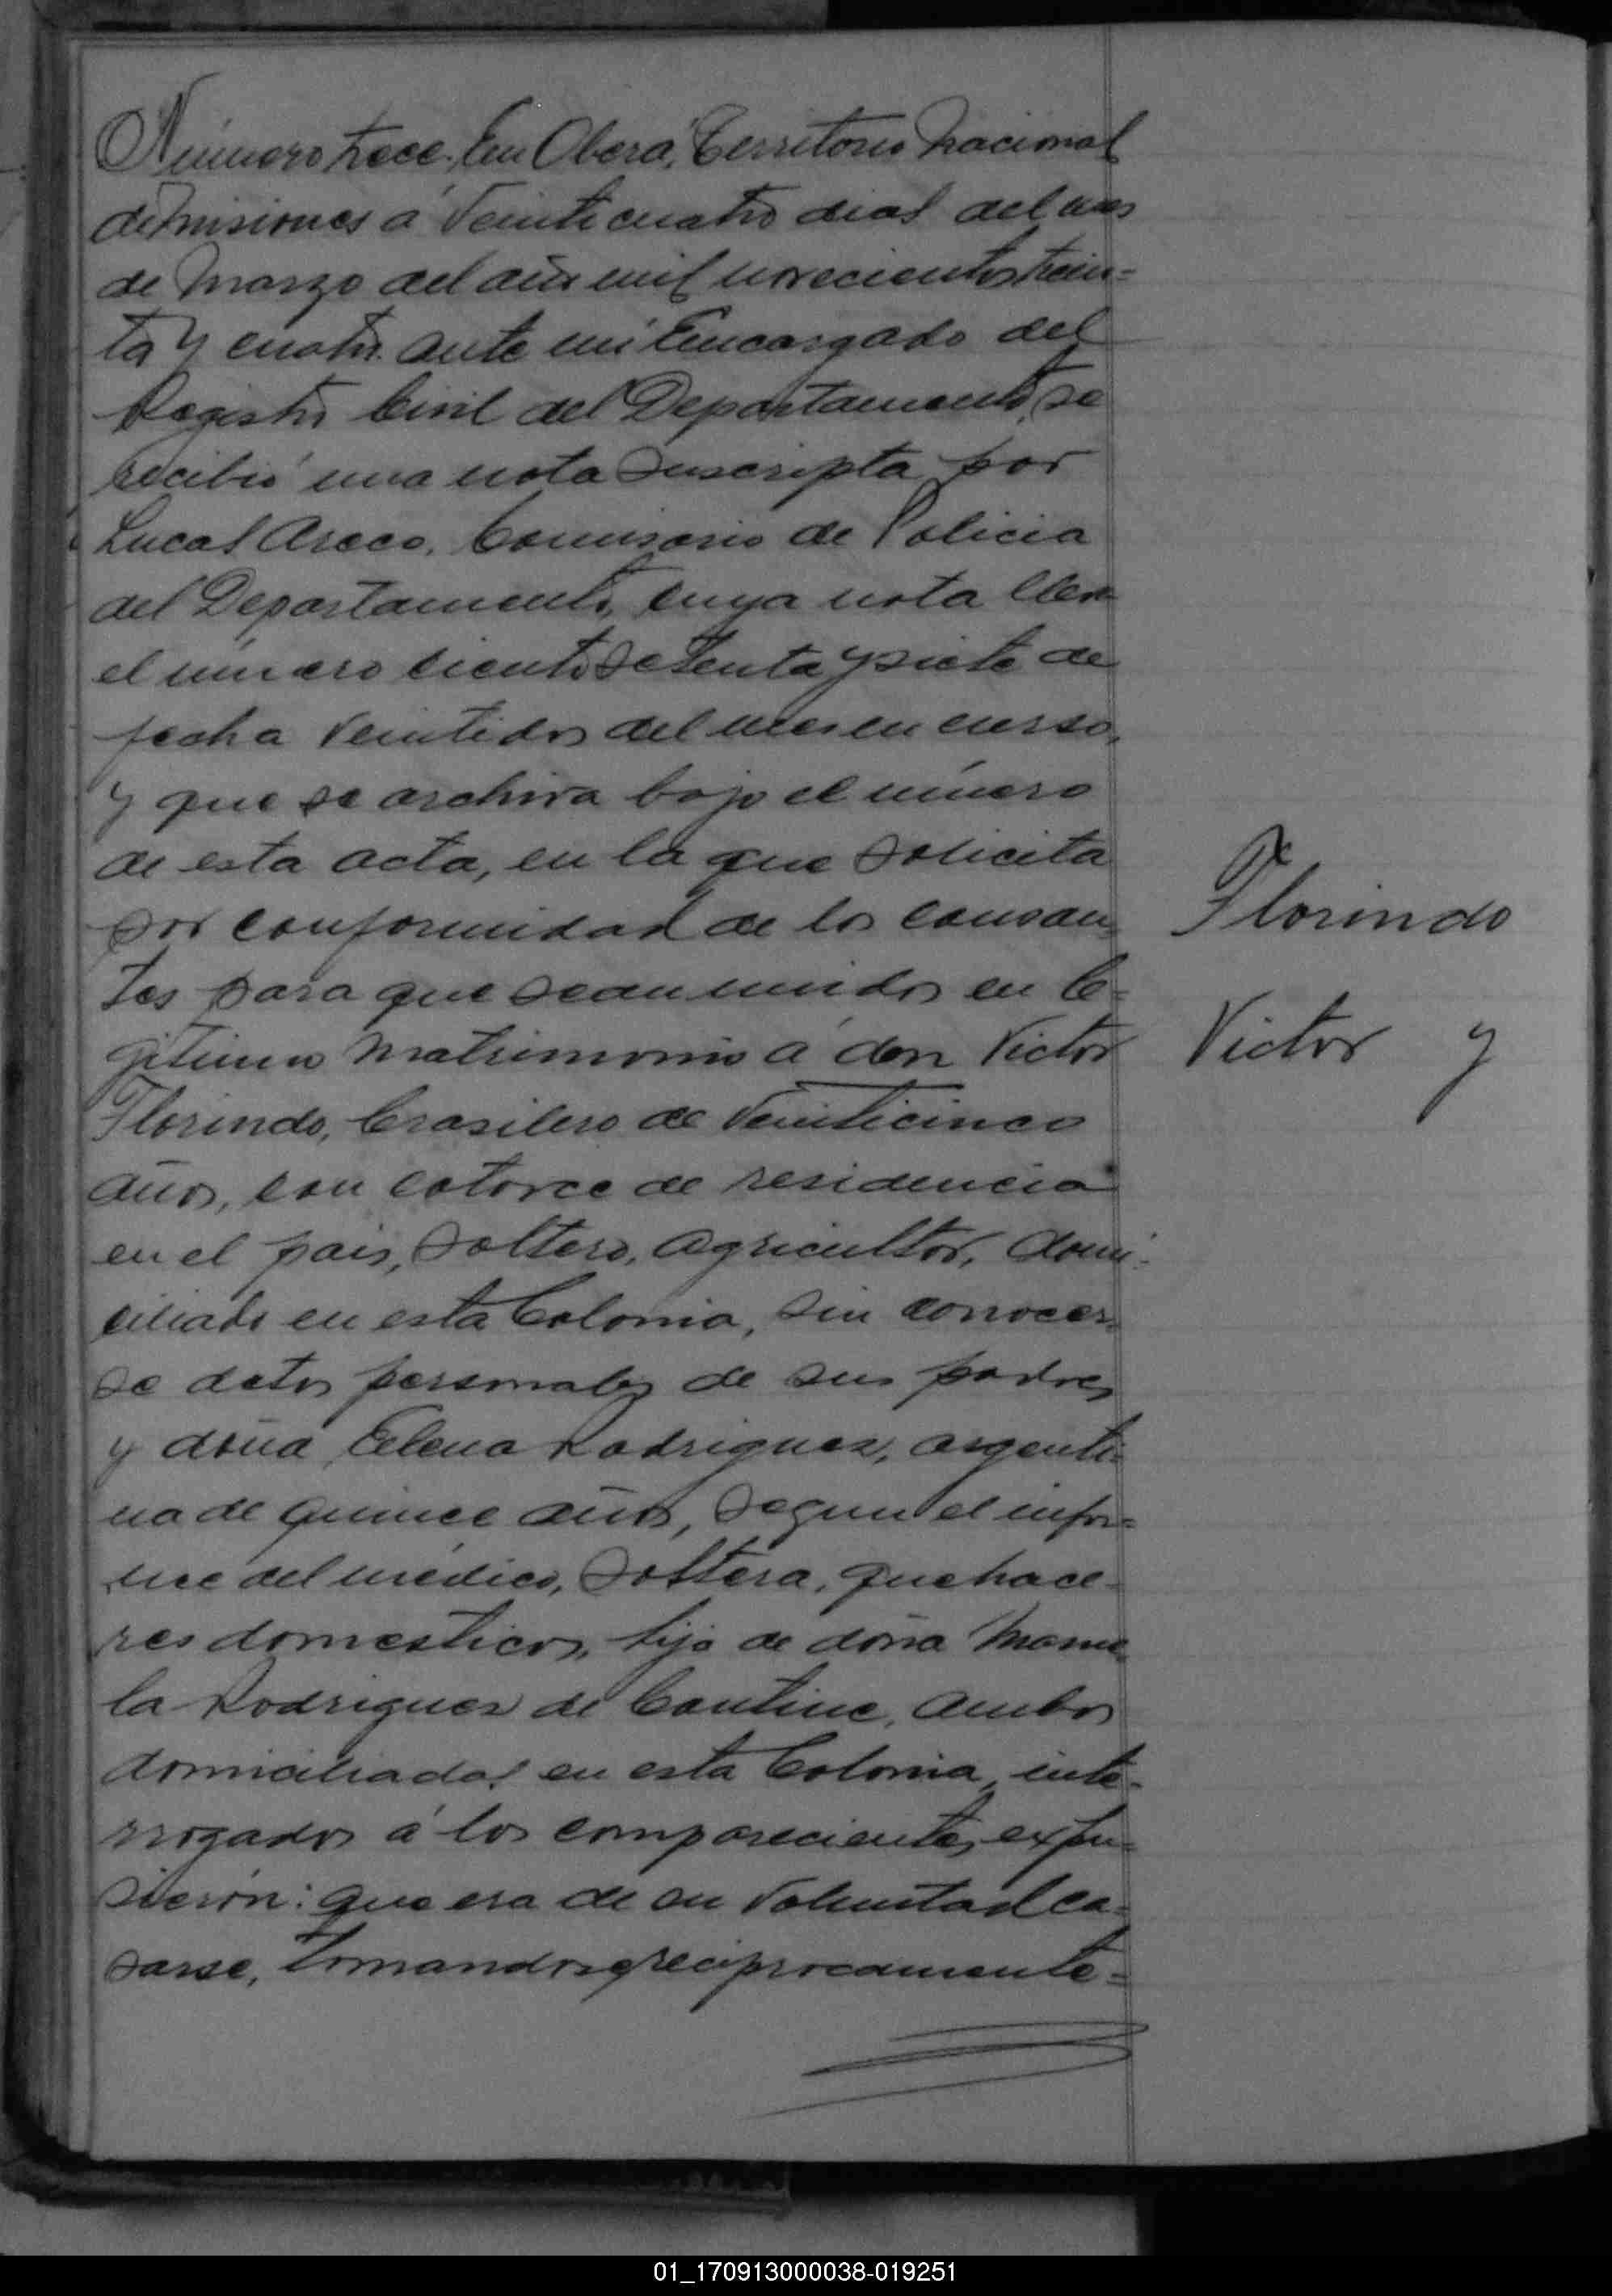 Número trece. En Oberá, Territorio Nacional
de Misiones á Veinticuatro dias del mes
de Marzo del año mil novecientos trein=
ta y cuatro. ante mí Encargado del
Registro Civil del Departamento, se
recibió una nota Suscripta por
Lucas Areco, Comisario de Policia
del Departamento, cuya nota lleva
el número ciento setenta y siete de
fecha Veintidos del mes en curso,
y que se archiva bajo el número
de esta acta, en la que Solicita
por conformidad de los causan-
tes para que sean unidos en le-
gitimo Matrimonio á don Victor
Florindo, brasilero de Veinticinco
años, con catorce de residencia
en el pais, Soltero, agricultor, domi-
ciliado en esta Colonia, Sin conocer-
se datos personales de sus padres
y doña Elena Rodriguez, argenti-
na de quince años, Segun el infor=
me del médico, Soltera, quehace-
res domesticos, hija de doña Manue-
la Rodriguez de Cantine, ambos
domiciliados en esta Colonia, inte-
rrogados á los comparecientes, expu-
sieron: que era de su Voluntad ca=
sarse, tomandose reciprocamente=
Florindo
Victor y
01_170913000038-019251